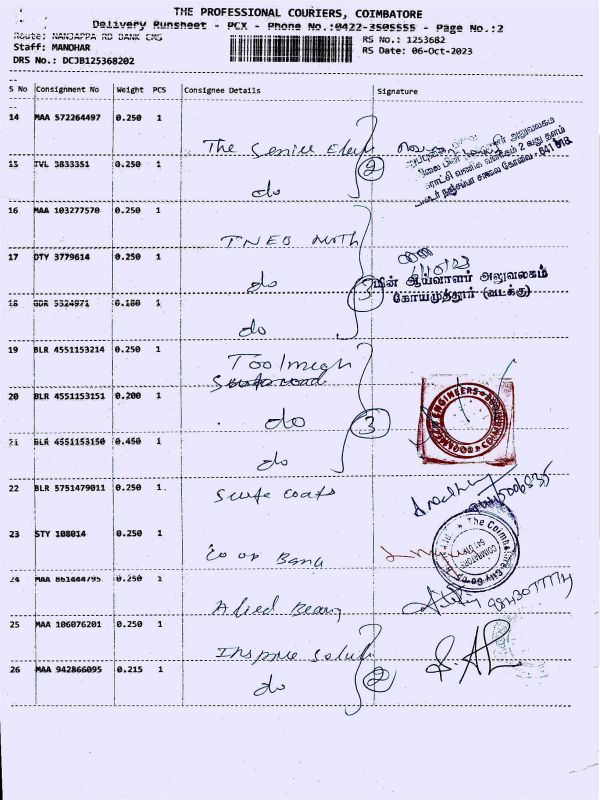 THE PROFESSIONAL COURIERS, COIMBATORE
Delivery Runsheet - PCX - Phone No.:0422-3505555 - Page No.:2
Route: NANJAPPA RD BANK CMS
RS No.: 1253682
Staff: MANOHAR
RS Date: 06-Oct-2023
DRS No.: DCJB125368202
S No Consignment No Weight PCS Consignee Details Signature
14 MAA 572264497 0.250 1
The Senice
15 TVL 3833351 0.250 1
do 2
16 MAA 103277570 0.250 1
TNEB North
17 OTY 3779614 0.250 1
do 3
மின் ஆய்வாளர் அலுவலகம்
கோயமுத்தூர் (வடக்கு)
18 GDR 5324971 0.180 1
do
19 BLR 4551153214 0.250 1
Toolmech
20 BLR 4551153151 0.200 1
do 3
21 BLR 4551153150 0.450 1
do
22 BLR 5751479011 0.250 1
Surfe coats
23 STY 108014 0.250 1
Co op Bank
24 MAA 861444795 0.250 1
Alied Bearing
25 MAA 106076201 0.250 1
Inspire
26 MAA 942866095 0.215 1
do 2